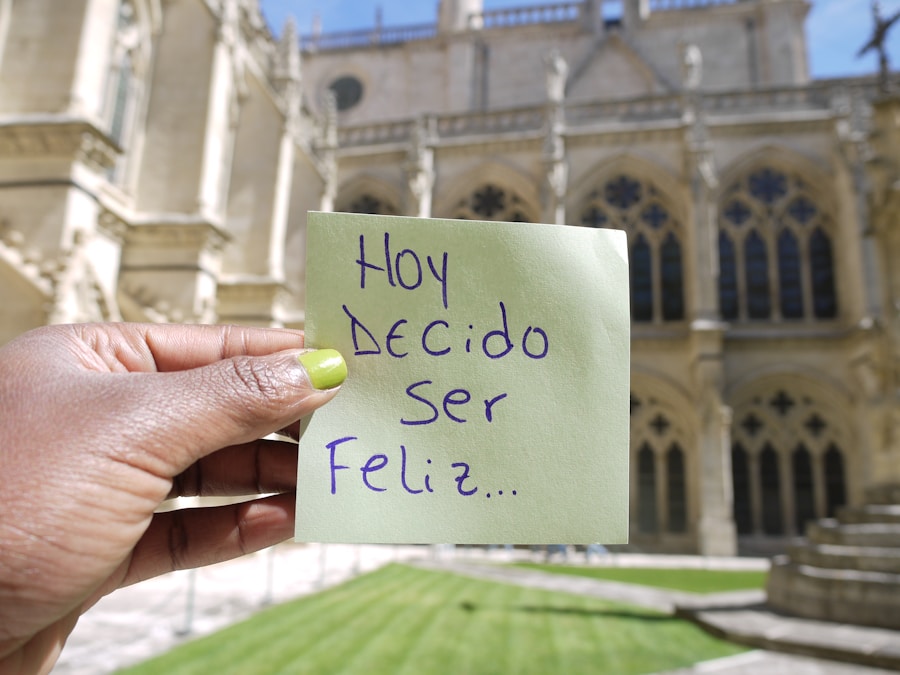 Hoy
DECido
Ser
Feliz...